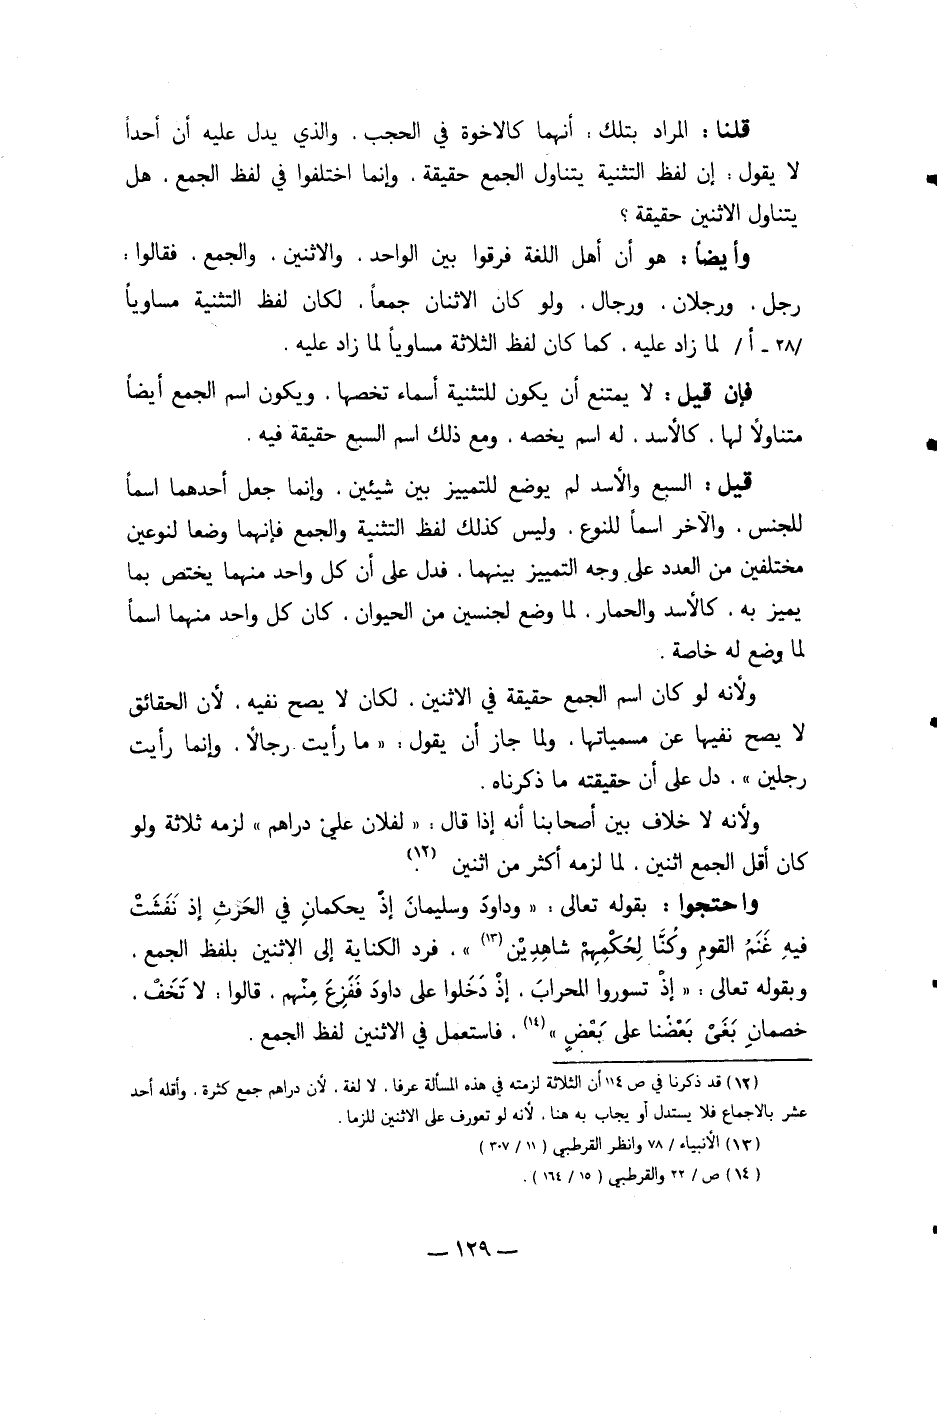 قلنا : المراد بتلك : أنهما كالاخوة في الحجب . والذي يدل عليه أن أحداً
لا يقول : إن لفظ التثنية يتناول الجمع حقيقة . وإنما اختلفوا في لفظ الجمع . هل
يتناول الاثنين حقيقة ؟
وأيضاً : هو أن أهل اللغة فرقوا بين الواحد . والاثنين . والجمع . فقالوا :
رجل . ورجلان . ورجال . ولو كان الاثنان جمعاً . لكان لفظ التثنية مساوياً
/٢٨ - أ/ لما زاد عليه . كما كان لفظ الثلاثة مساوياً لما زاد عليه .
فإن قيل : لا يمتنع أن يكون للتثنية أسماء تخصها . ويكون اسم الجمع أيضاً
متناولاً لها . كالأسد . له اسم يخصه . ومع ذلك اسم السبع حقيقة فيه .
قيل : السبع والأسد لم يوضع للتمييز بين شيئين . وإنما جعل أحدهما اسماً
للجنس . والآخر اسماً للنوع . وليس كذلك لفظ التثنية والجمع فإنهما وضعا لنوعين
مختلفين من العدد على وجه التمييز بينهما . فدل على أن كل واحد منهما يختص بما
يميز به . كالأسد والحمار . لما وضع لجنسين من الحيوان . كان كل واحد منهما اسماً
لما وضع له خاصة .
ولأنه لو كان اسم الجمع حقيقة في الاثنين . لكان لا يصح نفيه . لأن الحقائق
لا يصح نفيها عن مسمياتها . ولما جاز أن يقول : « ما رأيت رجالاً . وإنما رأيت
رجلين » . دل على أن حقيقته ما ذكرناه .
ولأنه لا خلاف بين أصحابنا أنه إذا قال : « لفلان عليّ دراهم » لزمه ثلاثة ولو
كان أقل الجمع اثنين . لما لزمه أكثر من اثنين (١٢) .
واحتجوا : بقوله تعالى : « وداودَ وسليمانَ إذْ يحكمانِ في الحَرْثِ إذ نَفَشَتْ
فيهِ غَنَمُ القومِ وكُنَّا لِحُكْمِهِمْ شاهِدِيْن (١٣) » . فرد الكناية إلى الاثنين بلفظ الجمع .
وبقوله تعالى : « إذْ تسوروا المحرابَ . إذْ دَخَلوا على داودَ فَفَزِعَ مِنْهم . قالوا : لا تَخَفْ .
خصمانِ بَغَىْ بَعْضُنا على بَعْضٍ » (١٤) . فاستعمل في الاثنين لفظ الجمع .
(١٢) قد ذكرنا في ص ١١٤ أن الثلاثة لزمته في هذه المسألة عرفا . لا لغة . لأن دراهم جمع كثرة . وأقله أحد
عشر بالاجماع فلا يستدل أو يجاب به هنا . لأنه لو تعورف على الاثنين للزما .
(١٣) الأنبياء / ٧٨ وانظر القرطبي ( ١١ / ٣٠٧ )
(١٤) ص / ٢٢ والقرطبي ( ١٥ / ١٦٤ ) .
— ١٢٩ —